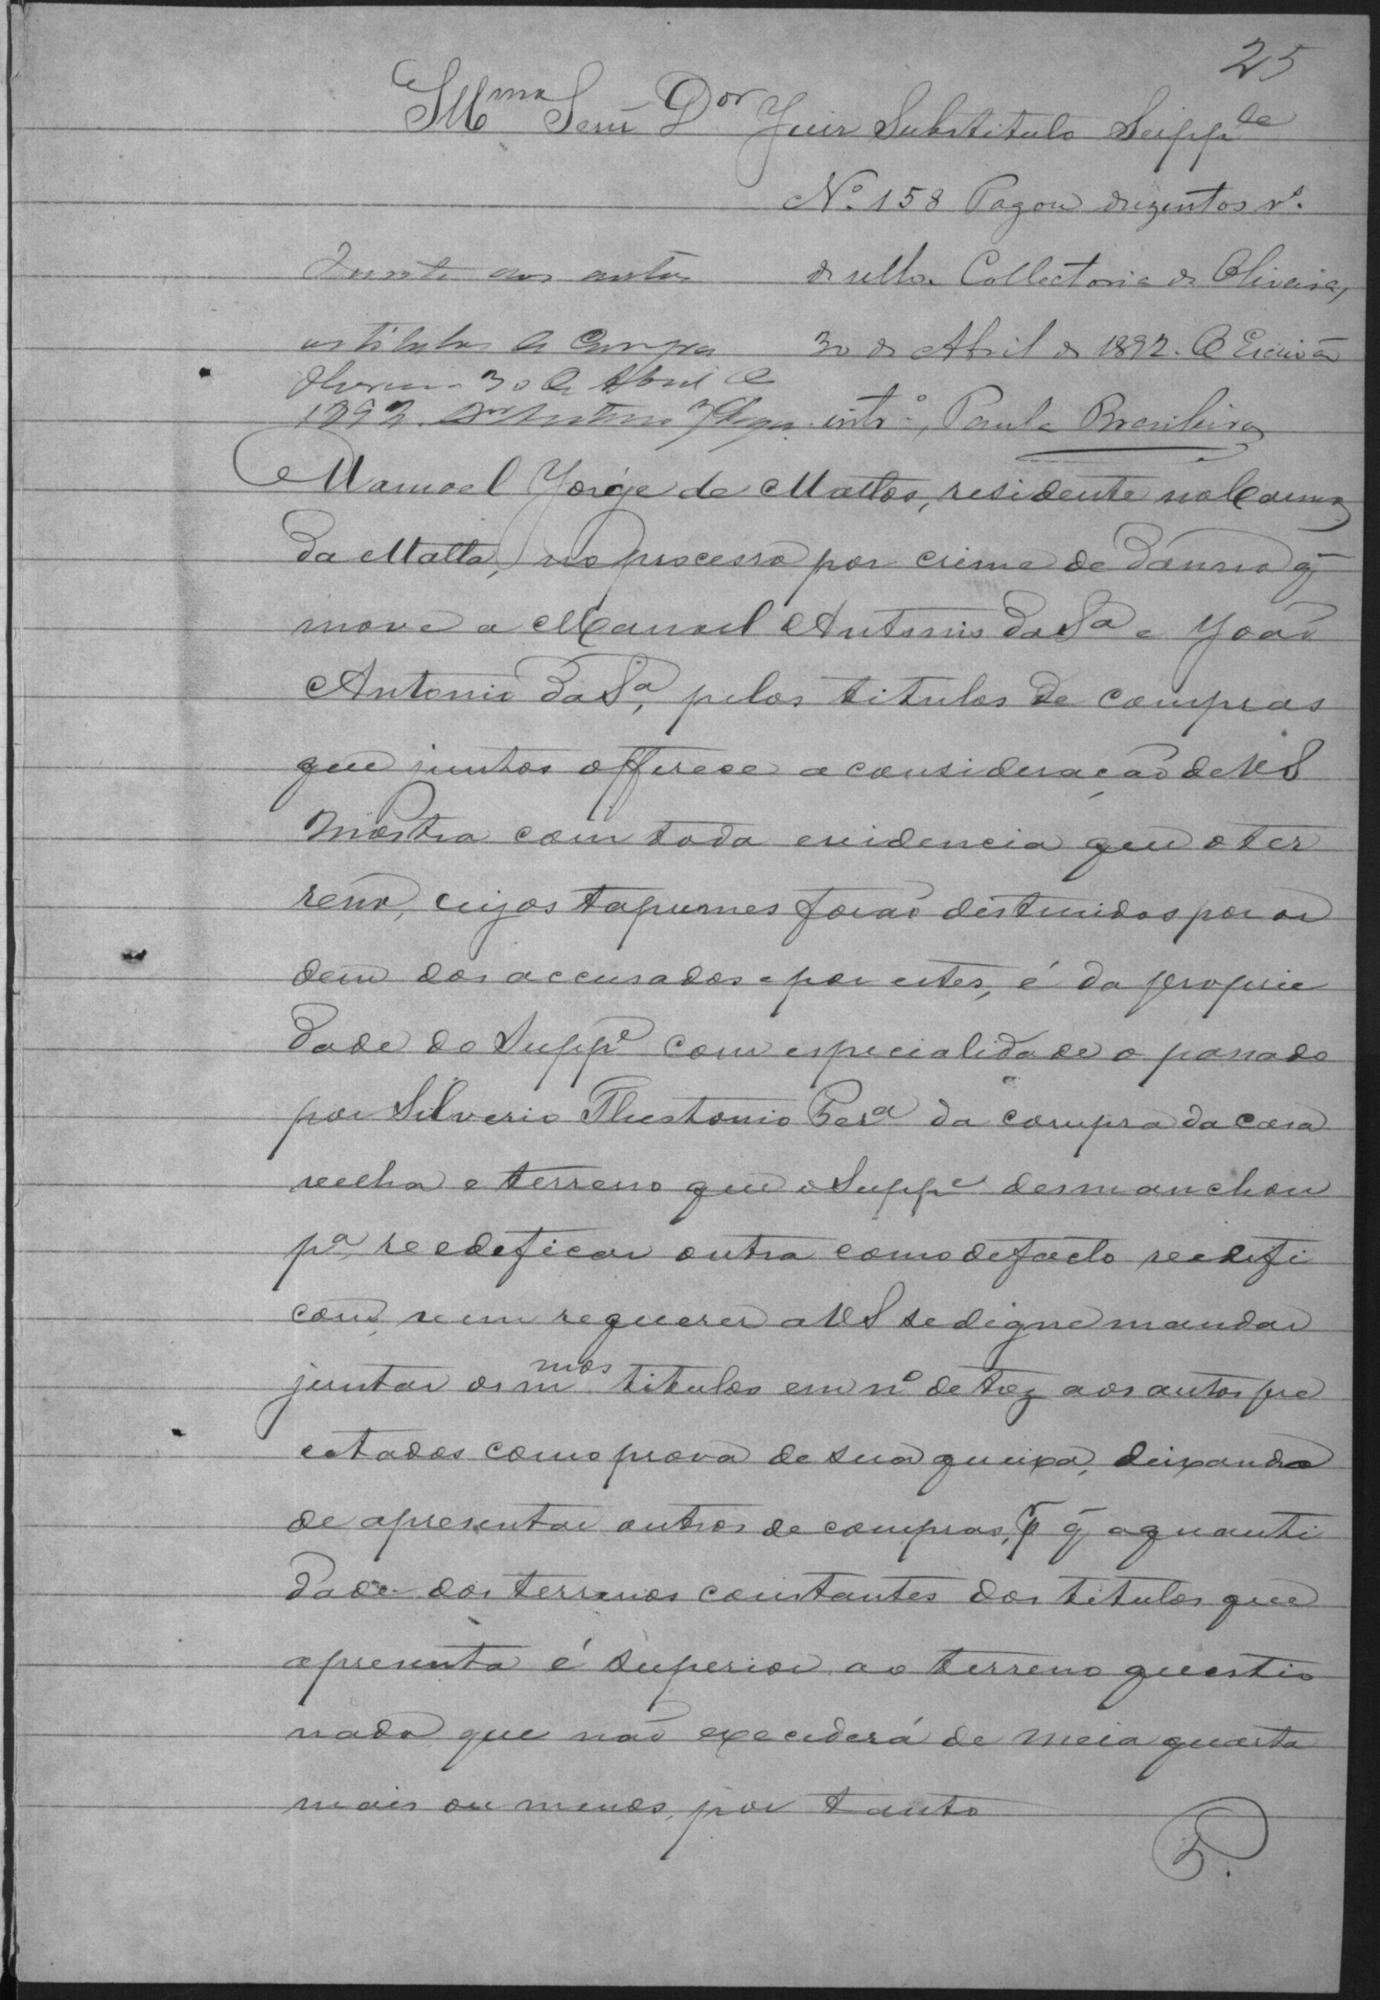 25
Illmo Senr Dor Juiz Substituto Supple
No. 158 Pagou duzentos rs.
de sello. Collectoria de Oliveira,
30 de Abril de 1892. O Escrivão
intro., Paula Brasileiro
Junte aos autos
os titulos de compra
30 de Abril de
1892.
Manoel Jorge de Mattos, residente no Carmo
da Matta, no processo por crime de damno q̃
move a Manoel Antonio da Sa e João
Antonio da Sa, pelos titulos de compras
que juntos offerece a consideração de VS
mostra com toda evidencia que o ter
reno, cujos tapumes forão destruidos por or
dem dos accusados e por estes, é da proprie
dade do Suppe com especialidade o passado
por Silverio Theotonio Pera da compra da casa
velha e terreno que o Suppe desmanchou
pa reedeficar outra como de facto reedefi
cou, vem requerer a VS se digne mandar
juntar os mmos titulos em no de trez aos autos pre
citados como prova de sua queixa, deixando
de apresentar outros de compras, pr q̃ a quanti
dade dos terrenos constantes dos titulos que
apresenta é superior ao terreno questio
nado que não excederá de meia quarta
mais ou menos, por tanto
P.